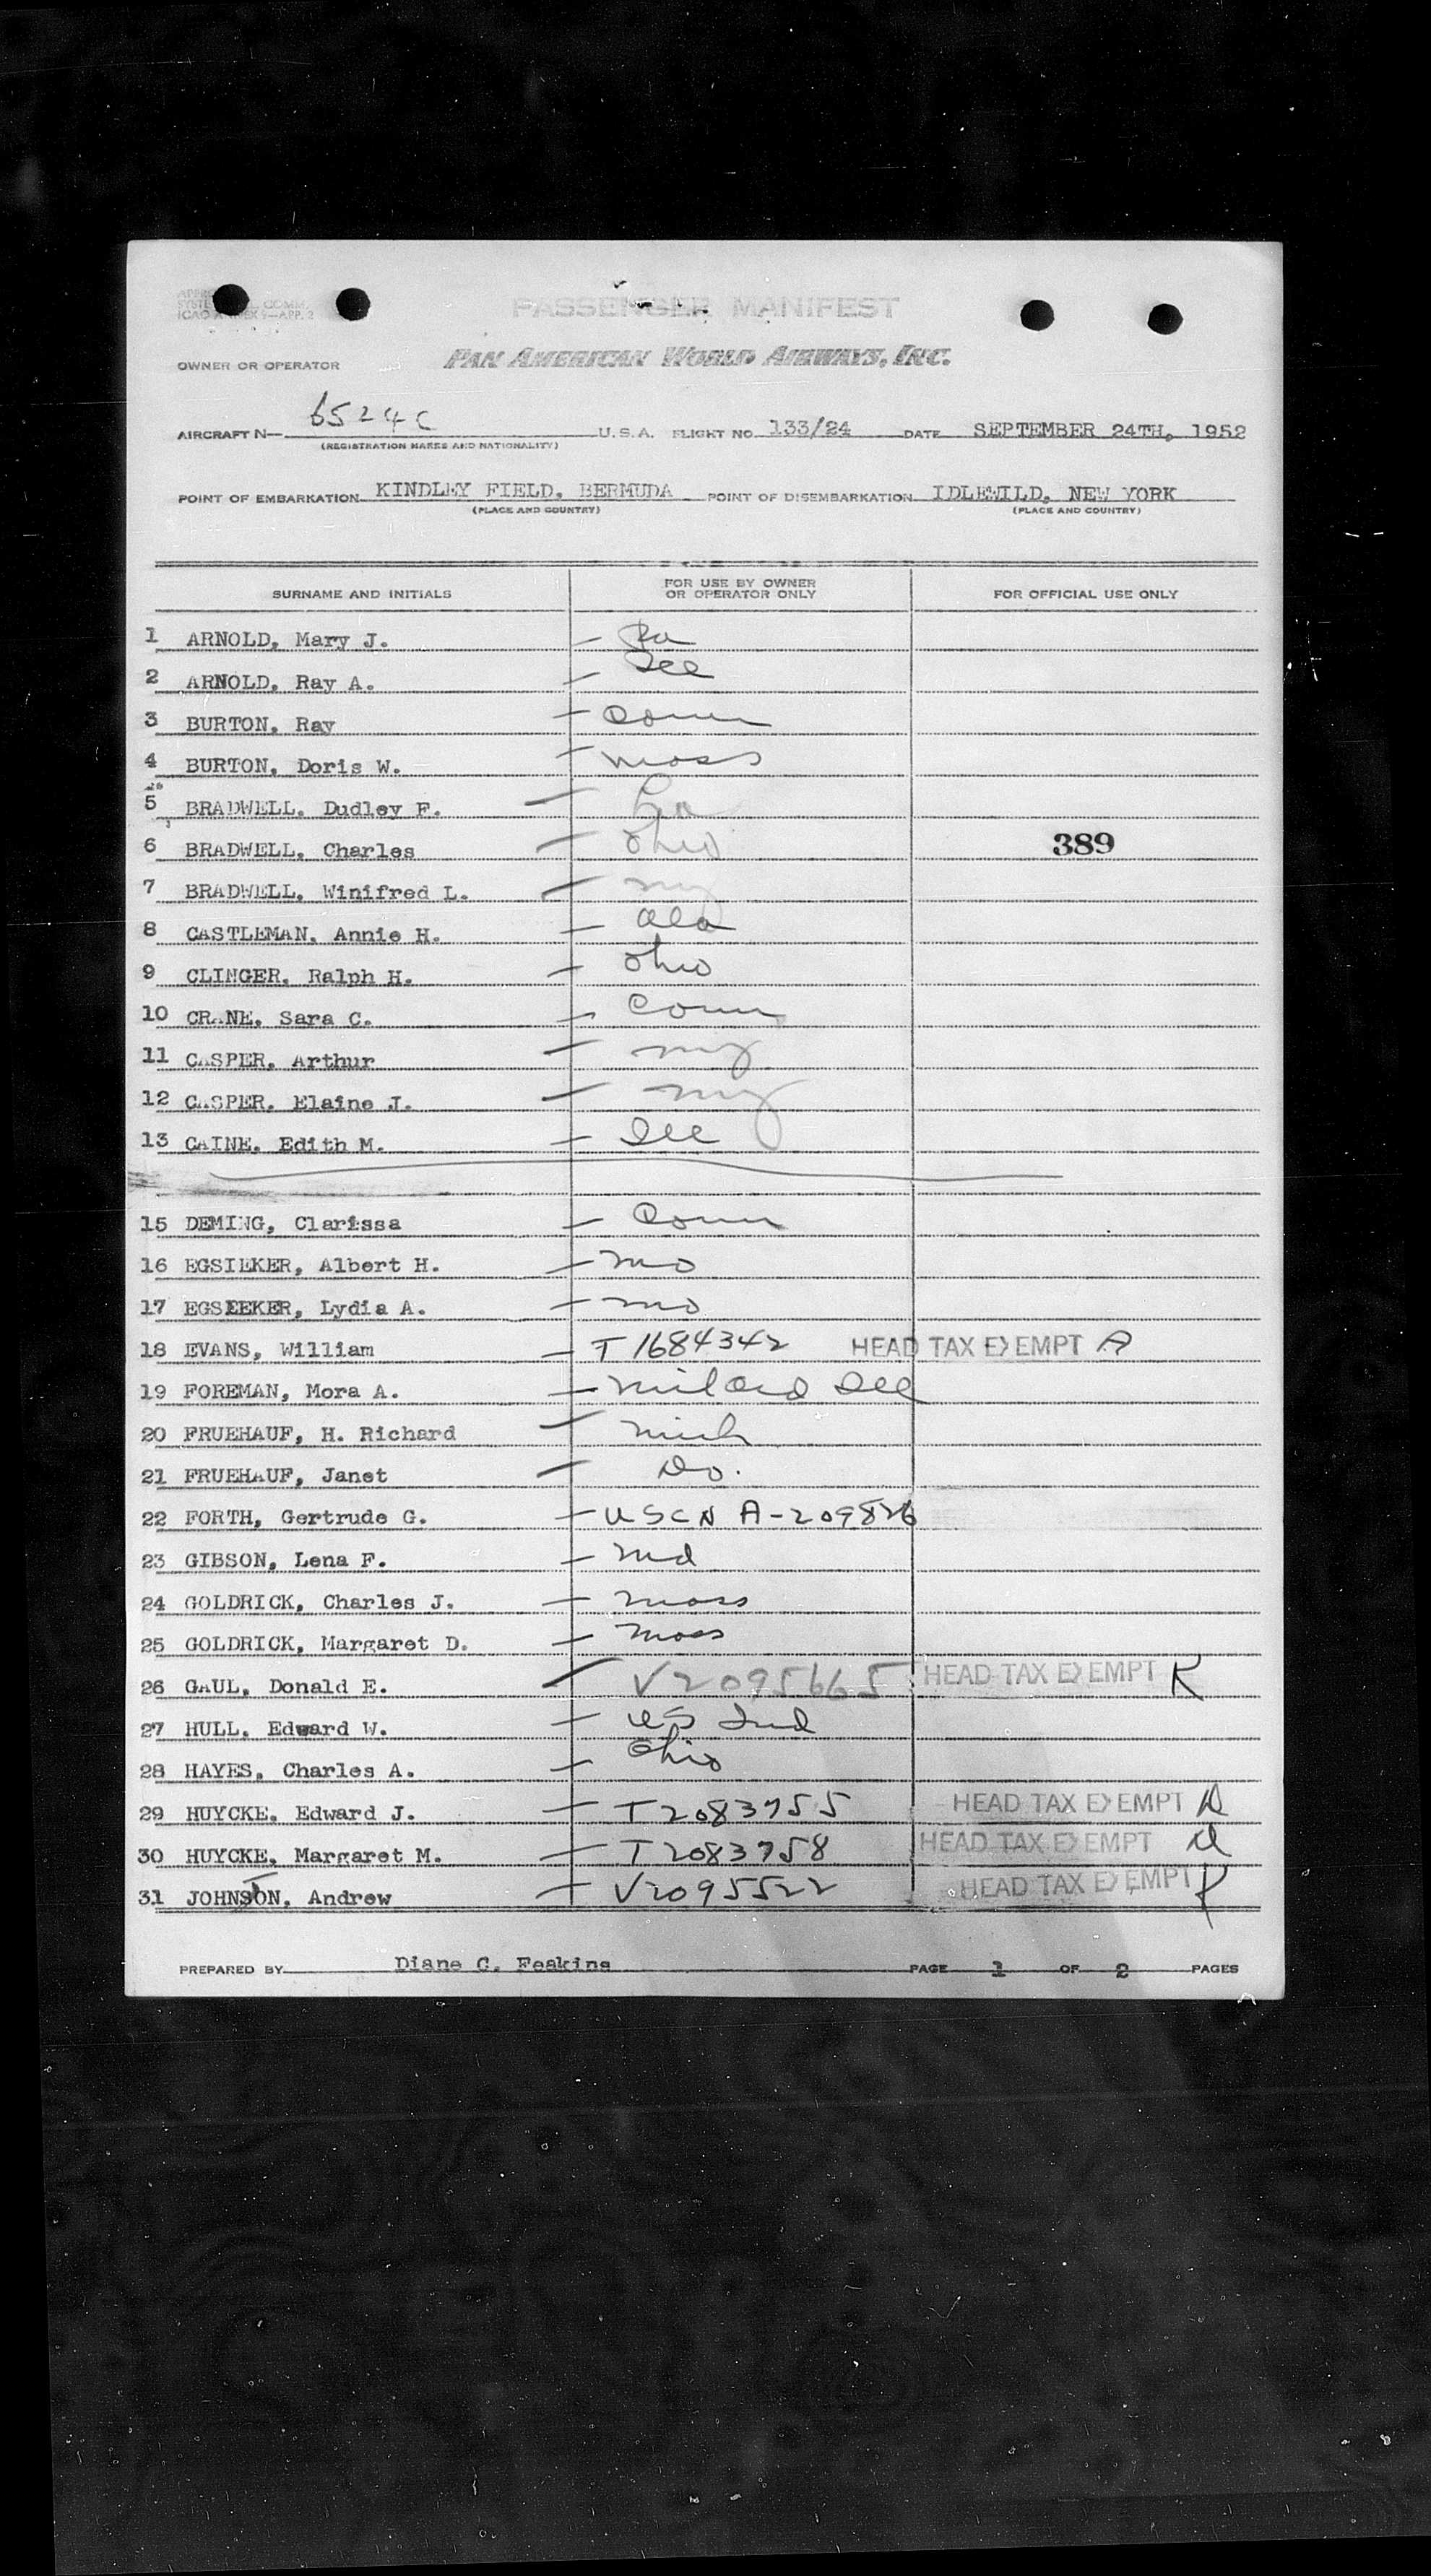 ICAO ANNEX 9—APP. 2
PASSENGER MANIFEST
OWNER OR OPERATOR PAN AMERICAN WORLD AIRWAYS, INC.
AIRCRAFT N— 6524C U.S.A. FLIGHT NO. 133/24 DATE SEPTEMBER 24TH, 1952
(REGISTRATION MARKS AND NATIONALITY)
POINT OF EMBARKATION KINDLEY FIELD, BERMUDA POINT OF DISEMBARKATION IDLEWILD, NEW YORK
(PLACE AND COUNTRY) (PLACE AND COUNTRY)
SURNAME AND INITIALS FOR USE BY OWNER OR OPERATOR ONLY FOR OFFICIAL USE ONLY
1 ARNOLD, Mary J. — Pa
2 ARNOLD, Ray A. — Ill
3 BURTON, Ray — Conn
4 BURTON, Doris W. — Mass
5 BRADWELL, Dudley F. — Ga
6 BRADWELL, Charles — Ohio 389
7 BRADWELL, Winifred L. — NY
8 CASTLEMAN, Annie H. — Ala
9 CLINGER, Ralph H. — Ohio
10 CRANE, Sara C. — Conn
11 CASPER, Arthur — NY
12 CASPER, Elaine J. — NY
13 CAINE, Edith M. — Ill
15 DEMING, Clarissa — Conn
16 EGSIEKER, Albert H. — Mo
17 EGSEEKER, Lydia A. — Mo
18 EVANS, William — T 1684342 HEAD TAX EXEMPT A
19 FOREMAN, Mora A. — Ill
20 FRUEHAUF, H. Richard — Mich
21 FRUEHAUF, Janet — Do.
22 FORTH, Gertrude G. — USCN A-209826
23 GIBSON, Lena F. — Md
24 GOLDRICK, Charles J. — Mass
25 GOLDRICK, Margaret D. — Mass
26 GAUL, Donald E. — V2095665 HEAD TAX EXEMPT K
27 HULL, Edward W. — US Ind
28 HAYES, Charles A. — Ohio
29 HUYCKE, Edward J. — T2083755 HEAD TAX EXEMPT
30 HUYCKE, Margaret M. — T2083758 HEAD TAX EXEMPT
31 JOHNSON, Andrew — V2095522 HEAD TAX EXEMPT
PREPARED BY Diane C. Feakins PAGE 1 OF 2 PAGES